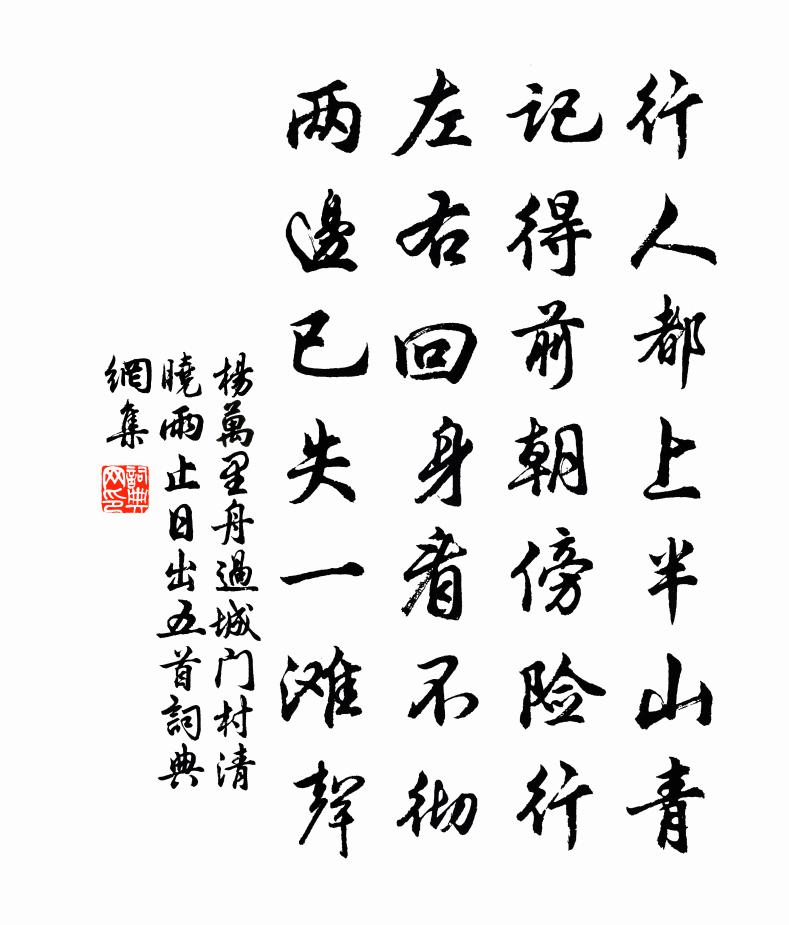 行人都上半山青
记得前朝傍险行
左右回身看不彻
两邊已失一滩聲
楊萬里舟過城门村清
曉雨止日出五首詞典
網集
詞典
网印